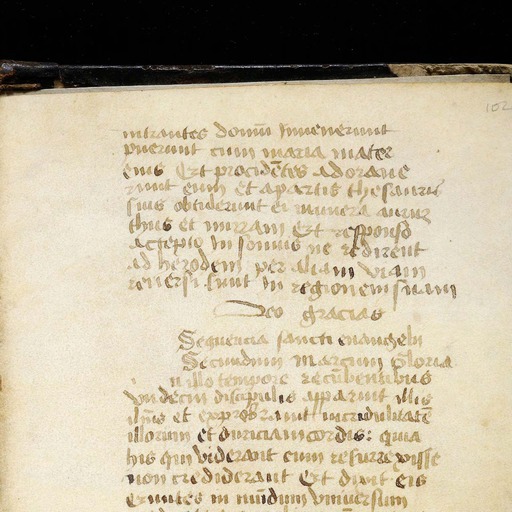 102
intrantes domū Inuenerunt
puerum cum maria mater
eius Et procidētes adoraue
runt eum et apartis thesauris
suis obtulerunt ei munera aurum
thus et mirram Et responso
accepto in somnis ne redirent
ad herodem per aliam viam
reuersi sunt in regionem suam
Deo gracias
Sequencia sancti euangelii
Secundum marcum Gloria
n illo tempore recūbentibus
vndecim discipulis apparuit illis
ihūs et exprobrauit incredulitatē
illorum et duriciam cordis: quia
his qui viderant eum resurrexisse
non crediderant Et dixit eis
euntes in mūdum vniuersum